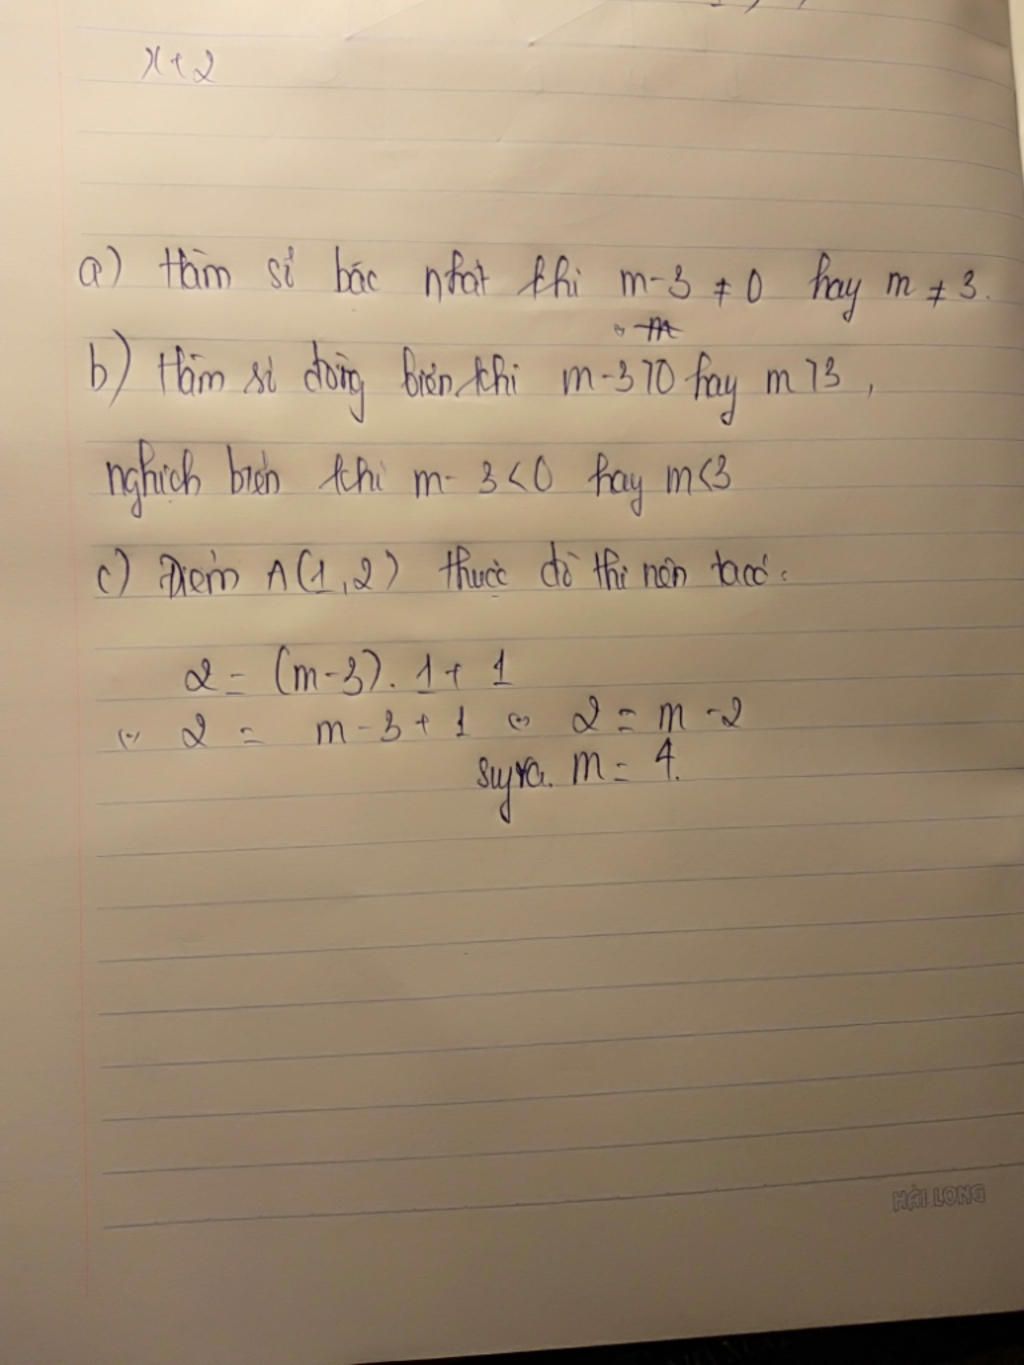 x+2
a) Hàm số bậc nhất khi m-3 ≠ 0 hay m ≠ 3.
b) Hàm số đồng biến khi m-3>0 hay m>3,
nghịch biến khi m-3<0 hay m<3
c) Điểm A(1,2) thuộc đồ thị nên ta có:
2 = (m-3).1+1
⇔ 2 = m-3+1 ⇔ 2 = m-2
suy ra. m = 4.
HẢI LONG